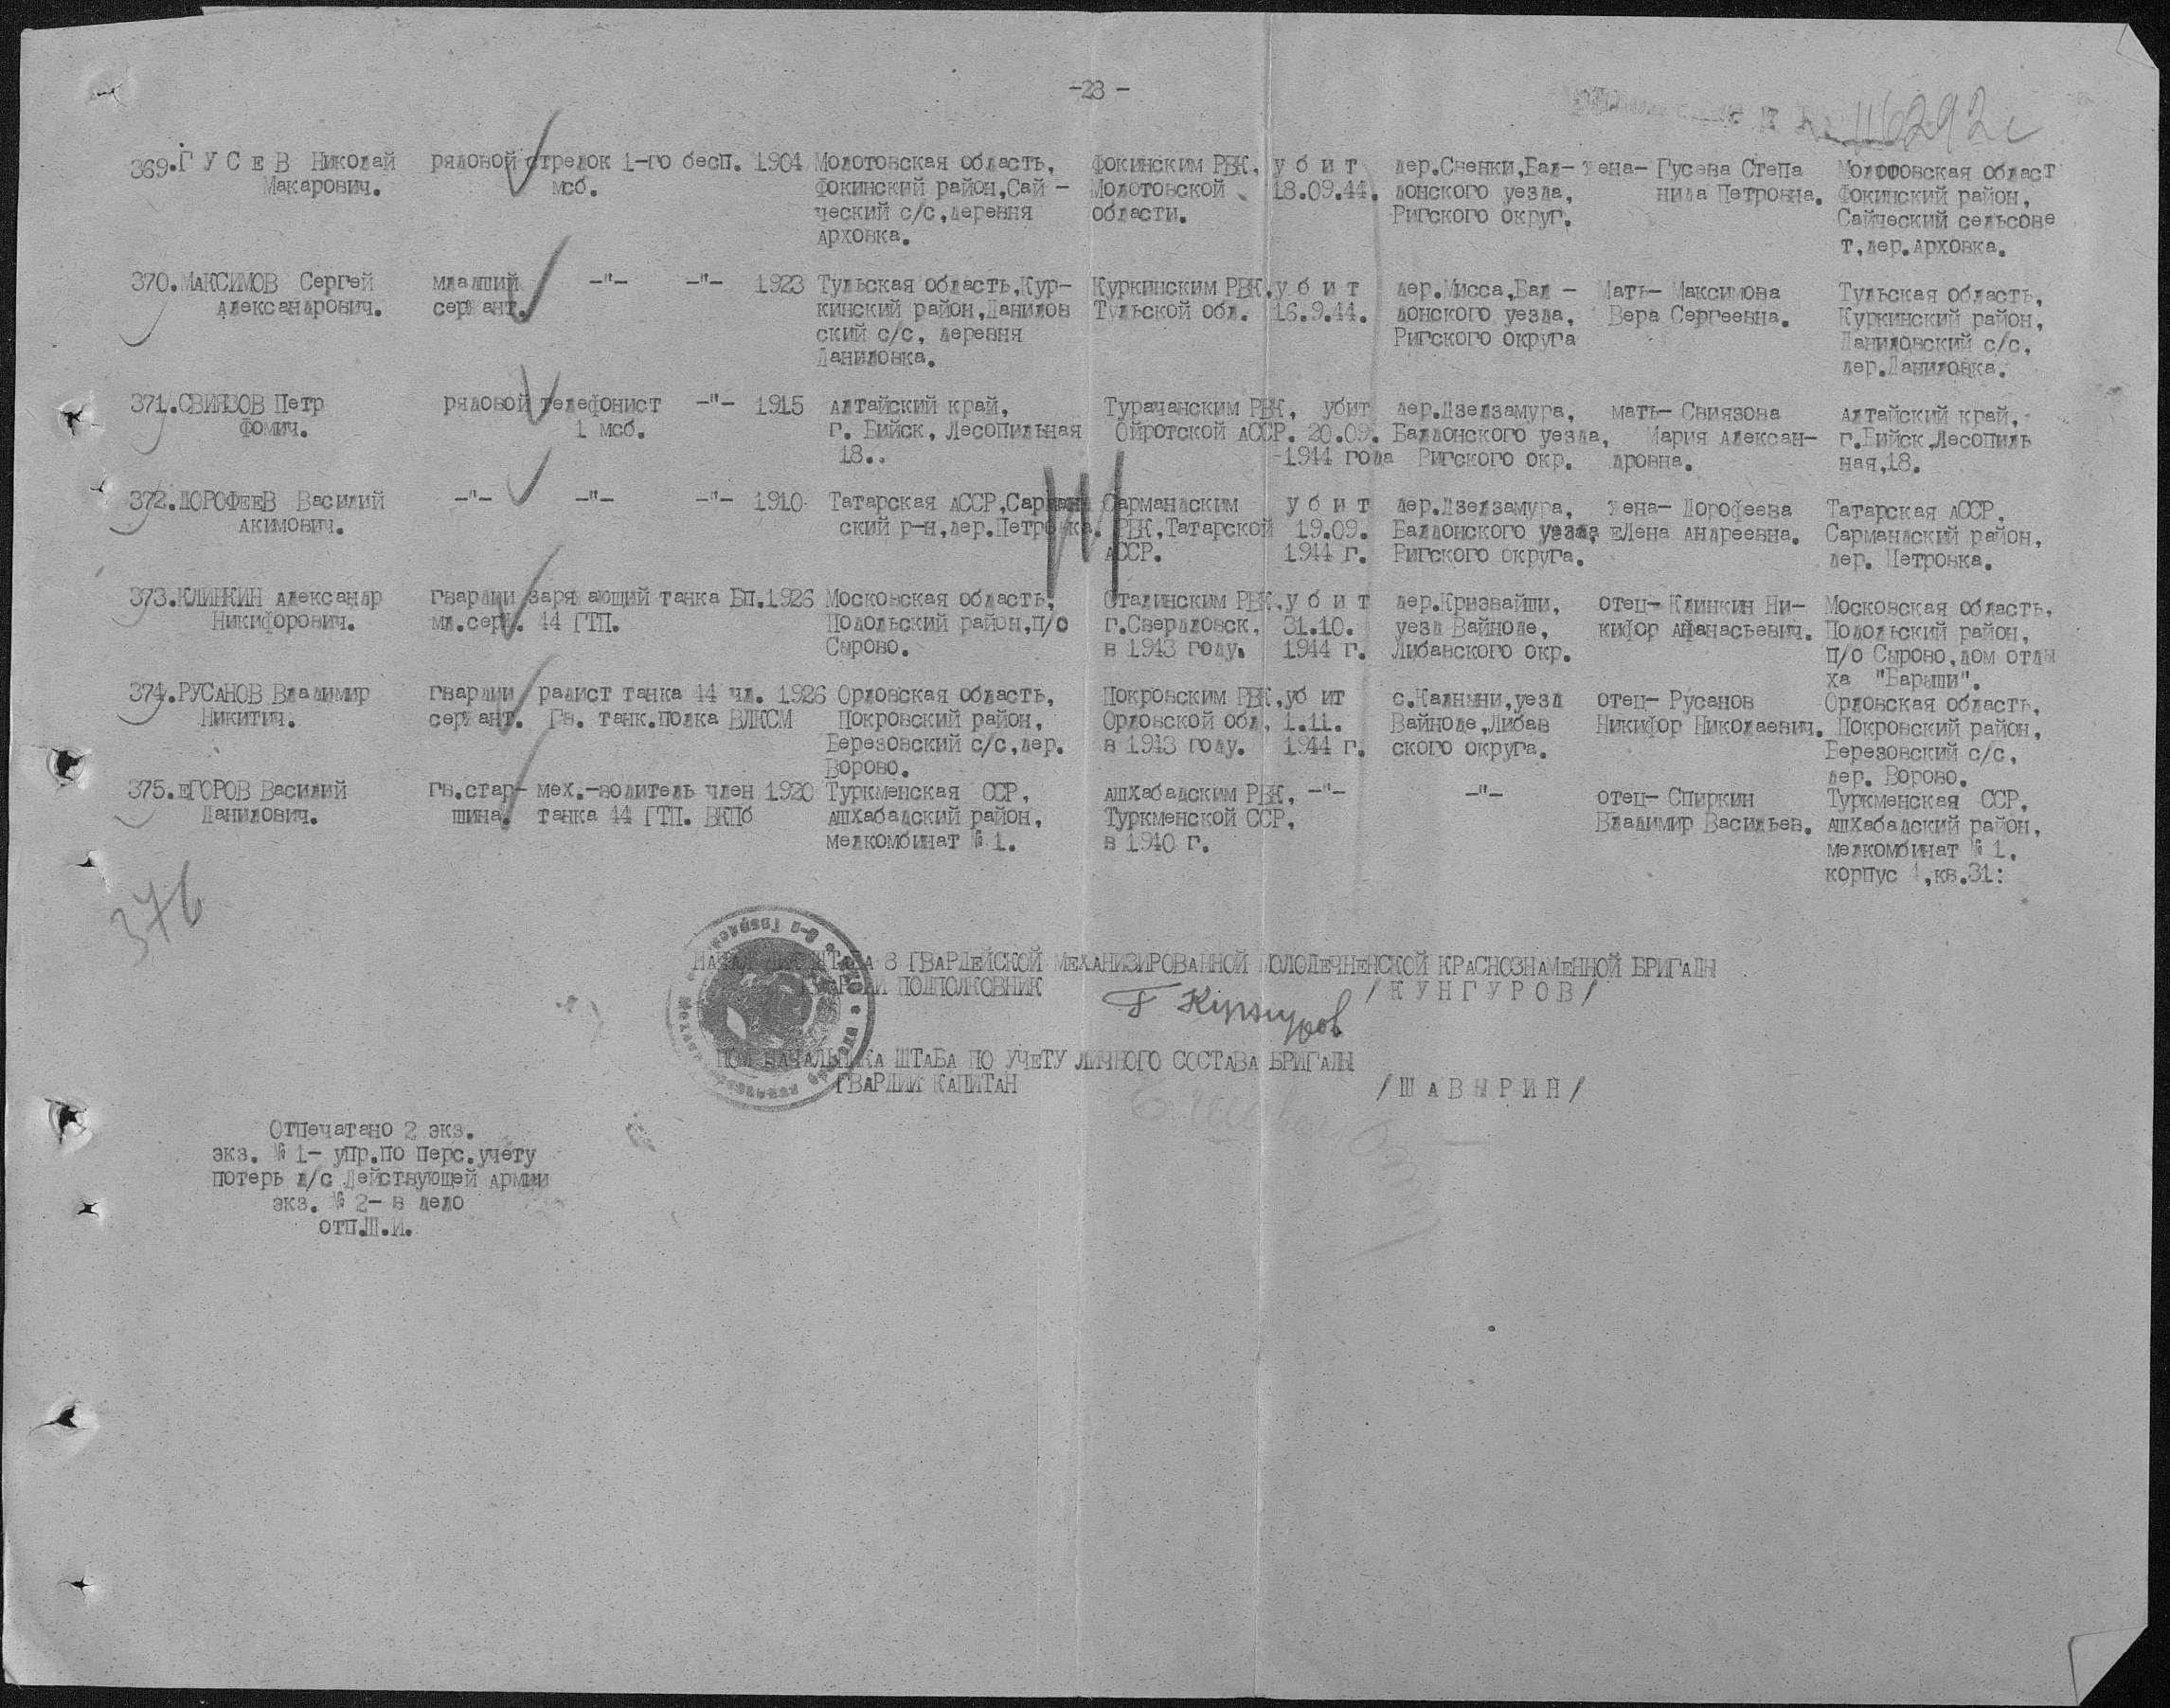 -23 -
116292с
369. Г У С Е В Николай Макарович. рядовой стрелок 1-го мсб. бесп. 1904 Молотовская область, Фокинский район, Сай - ческий с/с, деревня Арховка. Фокинским РВК, Молотовской области. у б и т 18.09.44. дер.Свенки, Бал- донского уезда, Ригского округ. жена- Гусева Степа нида Петровна. Молотовская област Фокинский район, Сайческий сельсове т, дер.Арховка.
370. МАКСИМОВ Сергей Александрович. младший сержант. -"- -"- 1923 Тульская область, Кур- кинский район, Данилов ский с/с, деревня Даниловка. Куркинским РВК, Тульской обл. у б и т 16.9.44. дер.Мисса, Бал - донского уезда, Ригского округа Мать- Максимова Вера Сергеевна. Тульская область, Куркинский район, Даниловский с/с, дер.Даниловка.
371. СВИЯЗОВ Петр Фомич. рядовой телефонист 1 мсб. -"- 1915 Алтайский край, г. Бийск, Лесопильная 18.. Турачанским РВК, Ойротской АССР. убит 20.09. 1944 года дер.Дзелзамура, Балдонского уезда, Ригского окр. мать- Свиязова Мария Алексан- дровна. Алтайский край, г.Бийск, Лесопиль ная, 18.
372. ДОРОФЕЕВ Василий Акимович. -"- -"- -"- 1910 Татарская АССР, Сарманд ский р-н, дер.Петровка. Сармандским РВК, Татарской АССР. у б и т 19.09. 1944 г. дер.Дзелзамура, Балдонского уезда, Ригского округа. жена- Дорофеева Елена Андреевна. Татарская АССР, Сармандский район, дер. Петровка.
373. КЛИНКИН Александр Никифорович. гвардии мл.серж. заряжающий танка 44 ГТП. БП. 1926 Московская область, Подольский район, п/о Сырово. Сталинским РВК, г.Свердловск, в 1943 году. у б и т 31.10. 1944 г. дер.Кризвайши, уезд Вайноде, Либавского окр. отец- Клинкин Ни- кифор Афанасьевич. Московская область, Подольский район, п/о Сырово, дом отды ха "Барыши".
374. РУСАНОВ Владимир Никитич. гвардии сержант. радист танка 44 Гв. танк.полка чл. ВЛКСМ 1926 Орловская область, Покровский район, Березовский с/с, дер. Ворово. Покровским РВК, Орловской обл, в 1943 году. уб ит 1.11. 1944 г. с.Калныни, уезд Вайноде, Либав ского округа. отец- Русанов Никифор Николаевич. Орловская область, Покровский район, Березовский с/с, дер. Ворово.
375. ЕГОРОВ Василий Данилович. гв.стар- шина. мех.-водитель танка 44 ГТП. член ВКПб 1920 Туркменская ССР, Ашхабадский район, мелкомбинат № 1. Ашхабадским РВК, Туркменской ССР, в 1940 г. -"- -"- отец- Спиркин Владимир Васильев. Туркменская ССР, Ашхабадский район, мелкомбинат № 1, корпус 1, кв.31:
376
НАЧАЛЬНИК ШТАБА 8 ГВАРДЕЙСКОЙ МЕХАНИЗИРОВАННОЙ МОЛОДЕЧНЕНСКОЙ КРАСНОЗНАМЕННОЙ БРИГАДЫ
ГВАРДИИ ПОДПОЛКОВНИК / К У Н Г У Р О В /
Г Кунгуров
ПОМ НАЧАЛЬНИКА ШТАБА ПО УЧЕТУ ЛИЧНОГО СОСТАВА БРИГАДЫ
ГВАРДИИ КАПИТАН / Ш А В Ы Р И Н /
Отпечатано 2 экз.
экз. № 1- упр.по перс.учету
потерь л/с Действующей Армии
экз. № 2- в дело
отп.Ш.И.